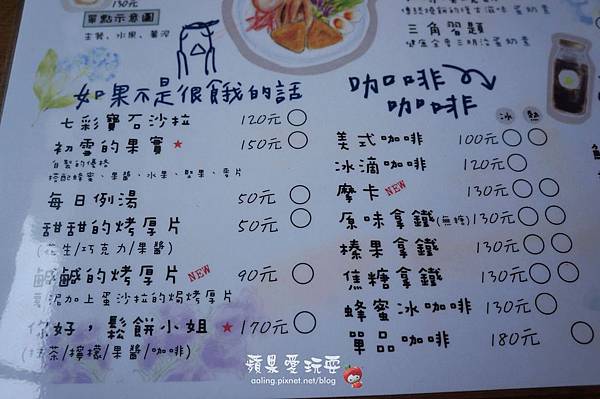 130元
單點示意圖
主餐、水果、薯泥
三角習題
如果不是很餓的話
七彩寶石沙拉 120元
初雪的果實 ★ 150元
自製的優格
搭配蜂蜜、果醬、水果、堅果、麥片
每日例湯 50元
甜甜的烤厚片 50元
(花生/巧克力/果醬)
鹹鹹的烤厚片 NEW 90元
泥加上蛋沙拉的焗烤厚片
你好，鬆餅小姐 ★ 170元
(抹茶/檸檬/果醬/咖啡)
咖啡
咖啡
冰 熱
美式咖啡 100元
冰滴咖啡 120元
摩卡 NEW 130元
原味拿鐵(無糖) 130元
榛果拿鐵 130元
焦糖拿鐵 130元
蜂蜜冰咖啡 130元
單品咖啡 180元
蘋果愛玩耍
aoling.pixnet.net/blog